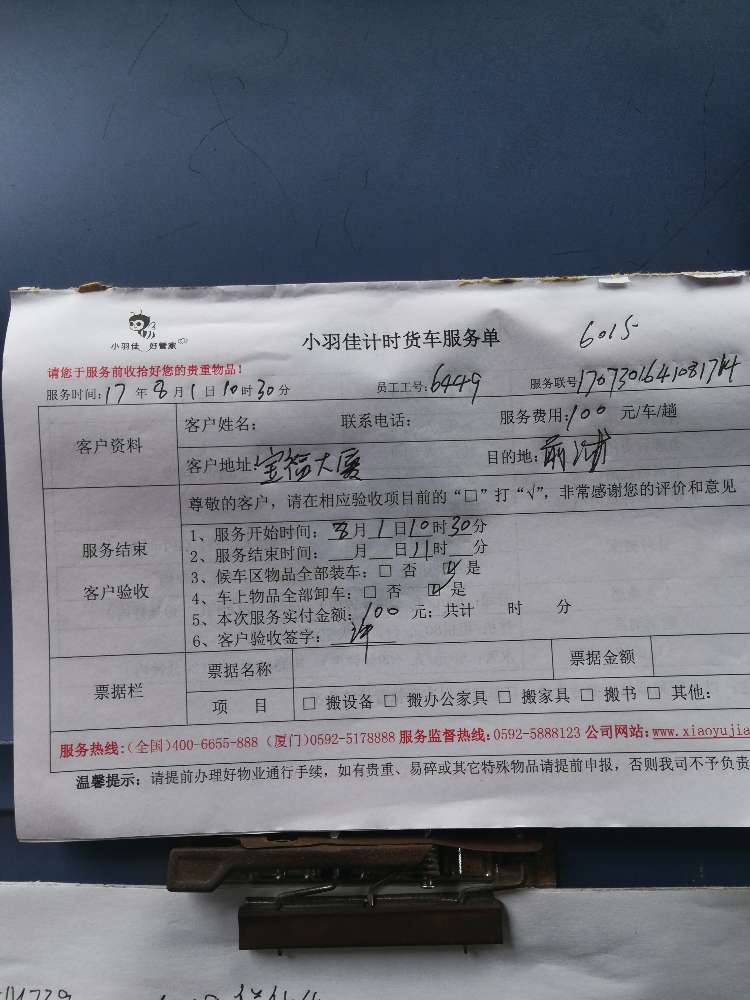 小羽佳 好管家
小羽佳计时货车服务单
6015
请您于服务前收拾好您的贵重物品!
服务时间:17年8月1日10时30分 员工工号:6449 服务联号170730164108174
客户资料
客户姓名: 联系电话: 服务费用:100 元/车/趟
客户地址:宝福大厦 目的地:前浦
服务结束
客户验收
尊敬的客户,请在相应验收项目前的“□”打“√”,非常感谢您的评价和意见
1、服务开始时间:8月1日10时30分
2、服务结束时间:__月__日11时__分
3、候车区物品全部装车:□ 否 ☑ 是
4、车上物品全部卸车:□ 否 ☑ 是
5、本次服务实付金额:100 元;共计 时 分
6、客户验收签字:
票据栏
票据名称 票据金额
项 目 □ 搬设备 □ 搬办公家具 □ 搬家具 □ 搬书 □ 其他:
服务热线:(全国)400-6655-888 (厦门)0592-5178888 服务监督热线:0592-5888123 公司网站:www.xiaoyujia
温馨提示:请提前办理好物业通行手续,如有贵重、易碎或其它特殊物品请提前申报,否则我司不予负责